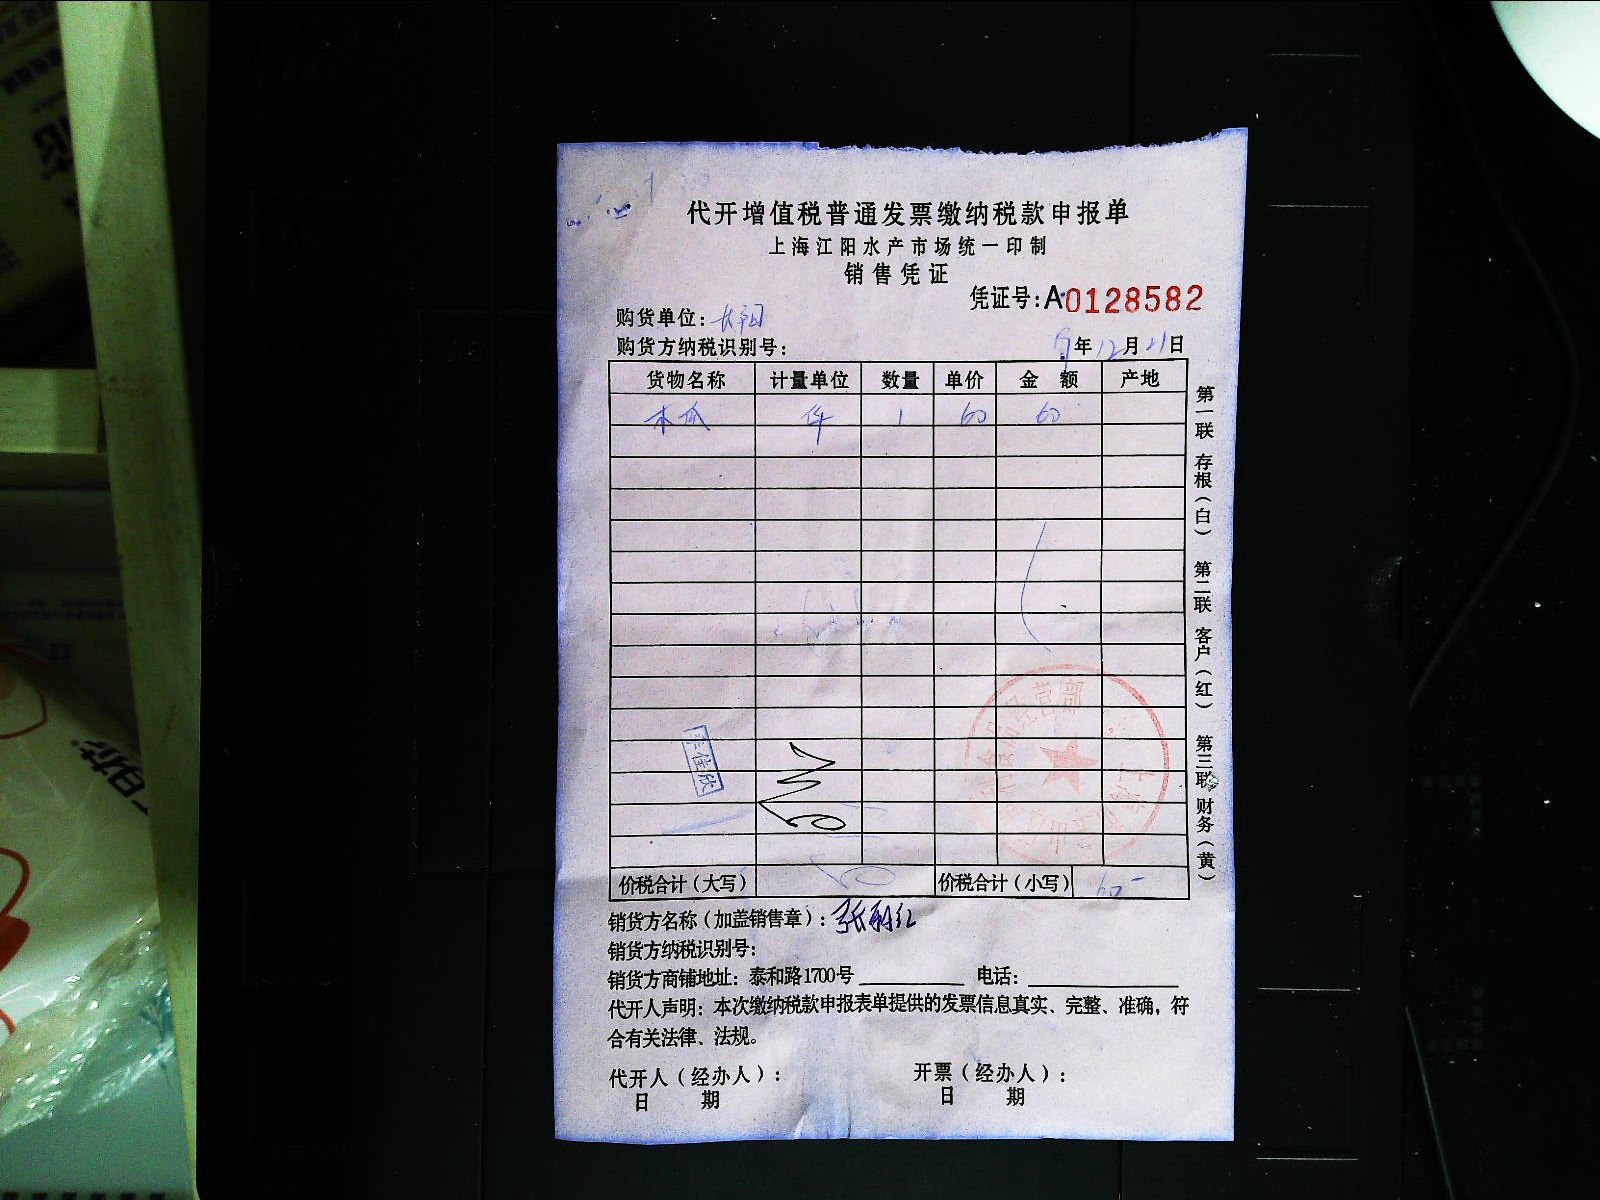 代开增值税普通发票缴纳税款申报单
上海江阳水产市场统一印制
销售凭证
凭证号:A0128582
购货单位:
购货方纳税识别号:
年12月21日
货物名称 计量单位 数量 单价 金额 产地
件 1 60 60
第一联 存根(白) 第二联 客户(红) 第三联 财务(黄)
经营部
李佳欣
价税合计(大写) 价税合计(小写) 60-
销货方名称(加盖销售章):张
销货方纳税识别号:
销货方商铺地址:泰和路1700号 电话:
代开人声明:本次缴纳税款申报表单提供的发票信息真实、完整、准确,符
合有关法律、法规。
代开人(经办人): 开票(经办人):
日期 日期